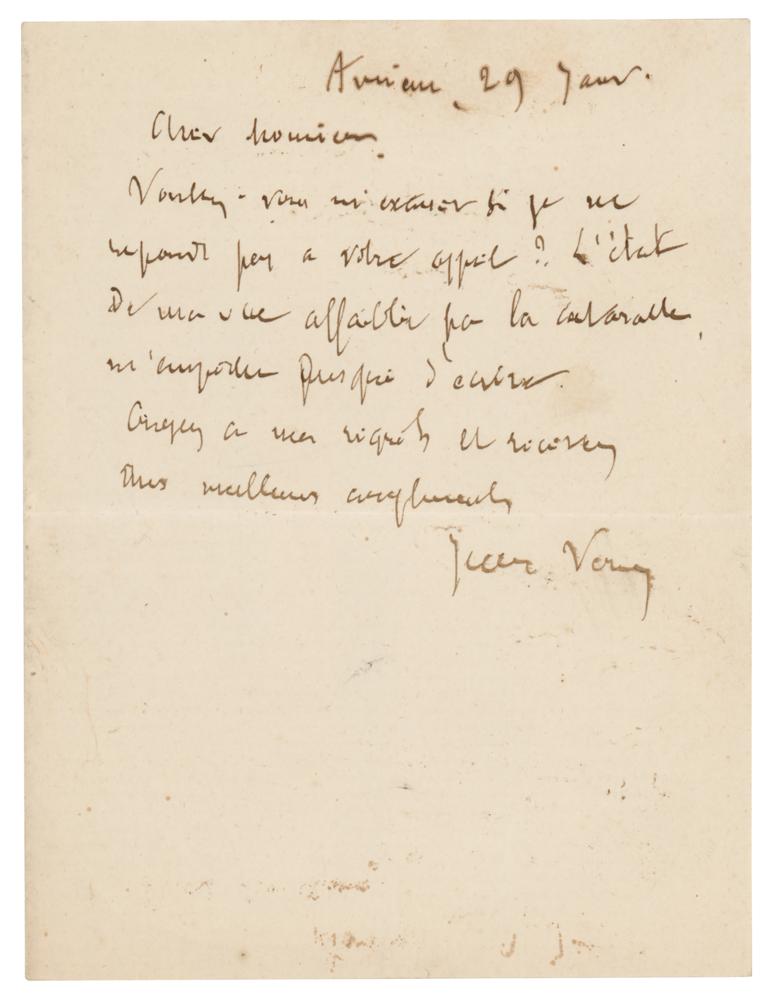 Amiens, 29 Janv.
Cher Monsieur,
Voulez-vous m'excuser si je ne
reponds pas a votre appel ? L'état
De ma vue affaiblie par la cataracte,
m'empêche presque d'écrire.
Croyez a mes regrets et recevez
mes meilleurs compliments
Jules Verne